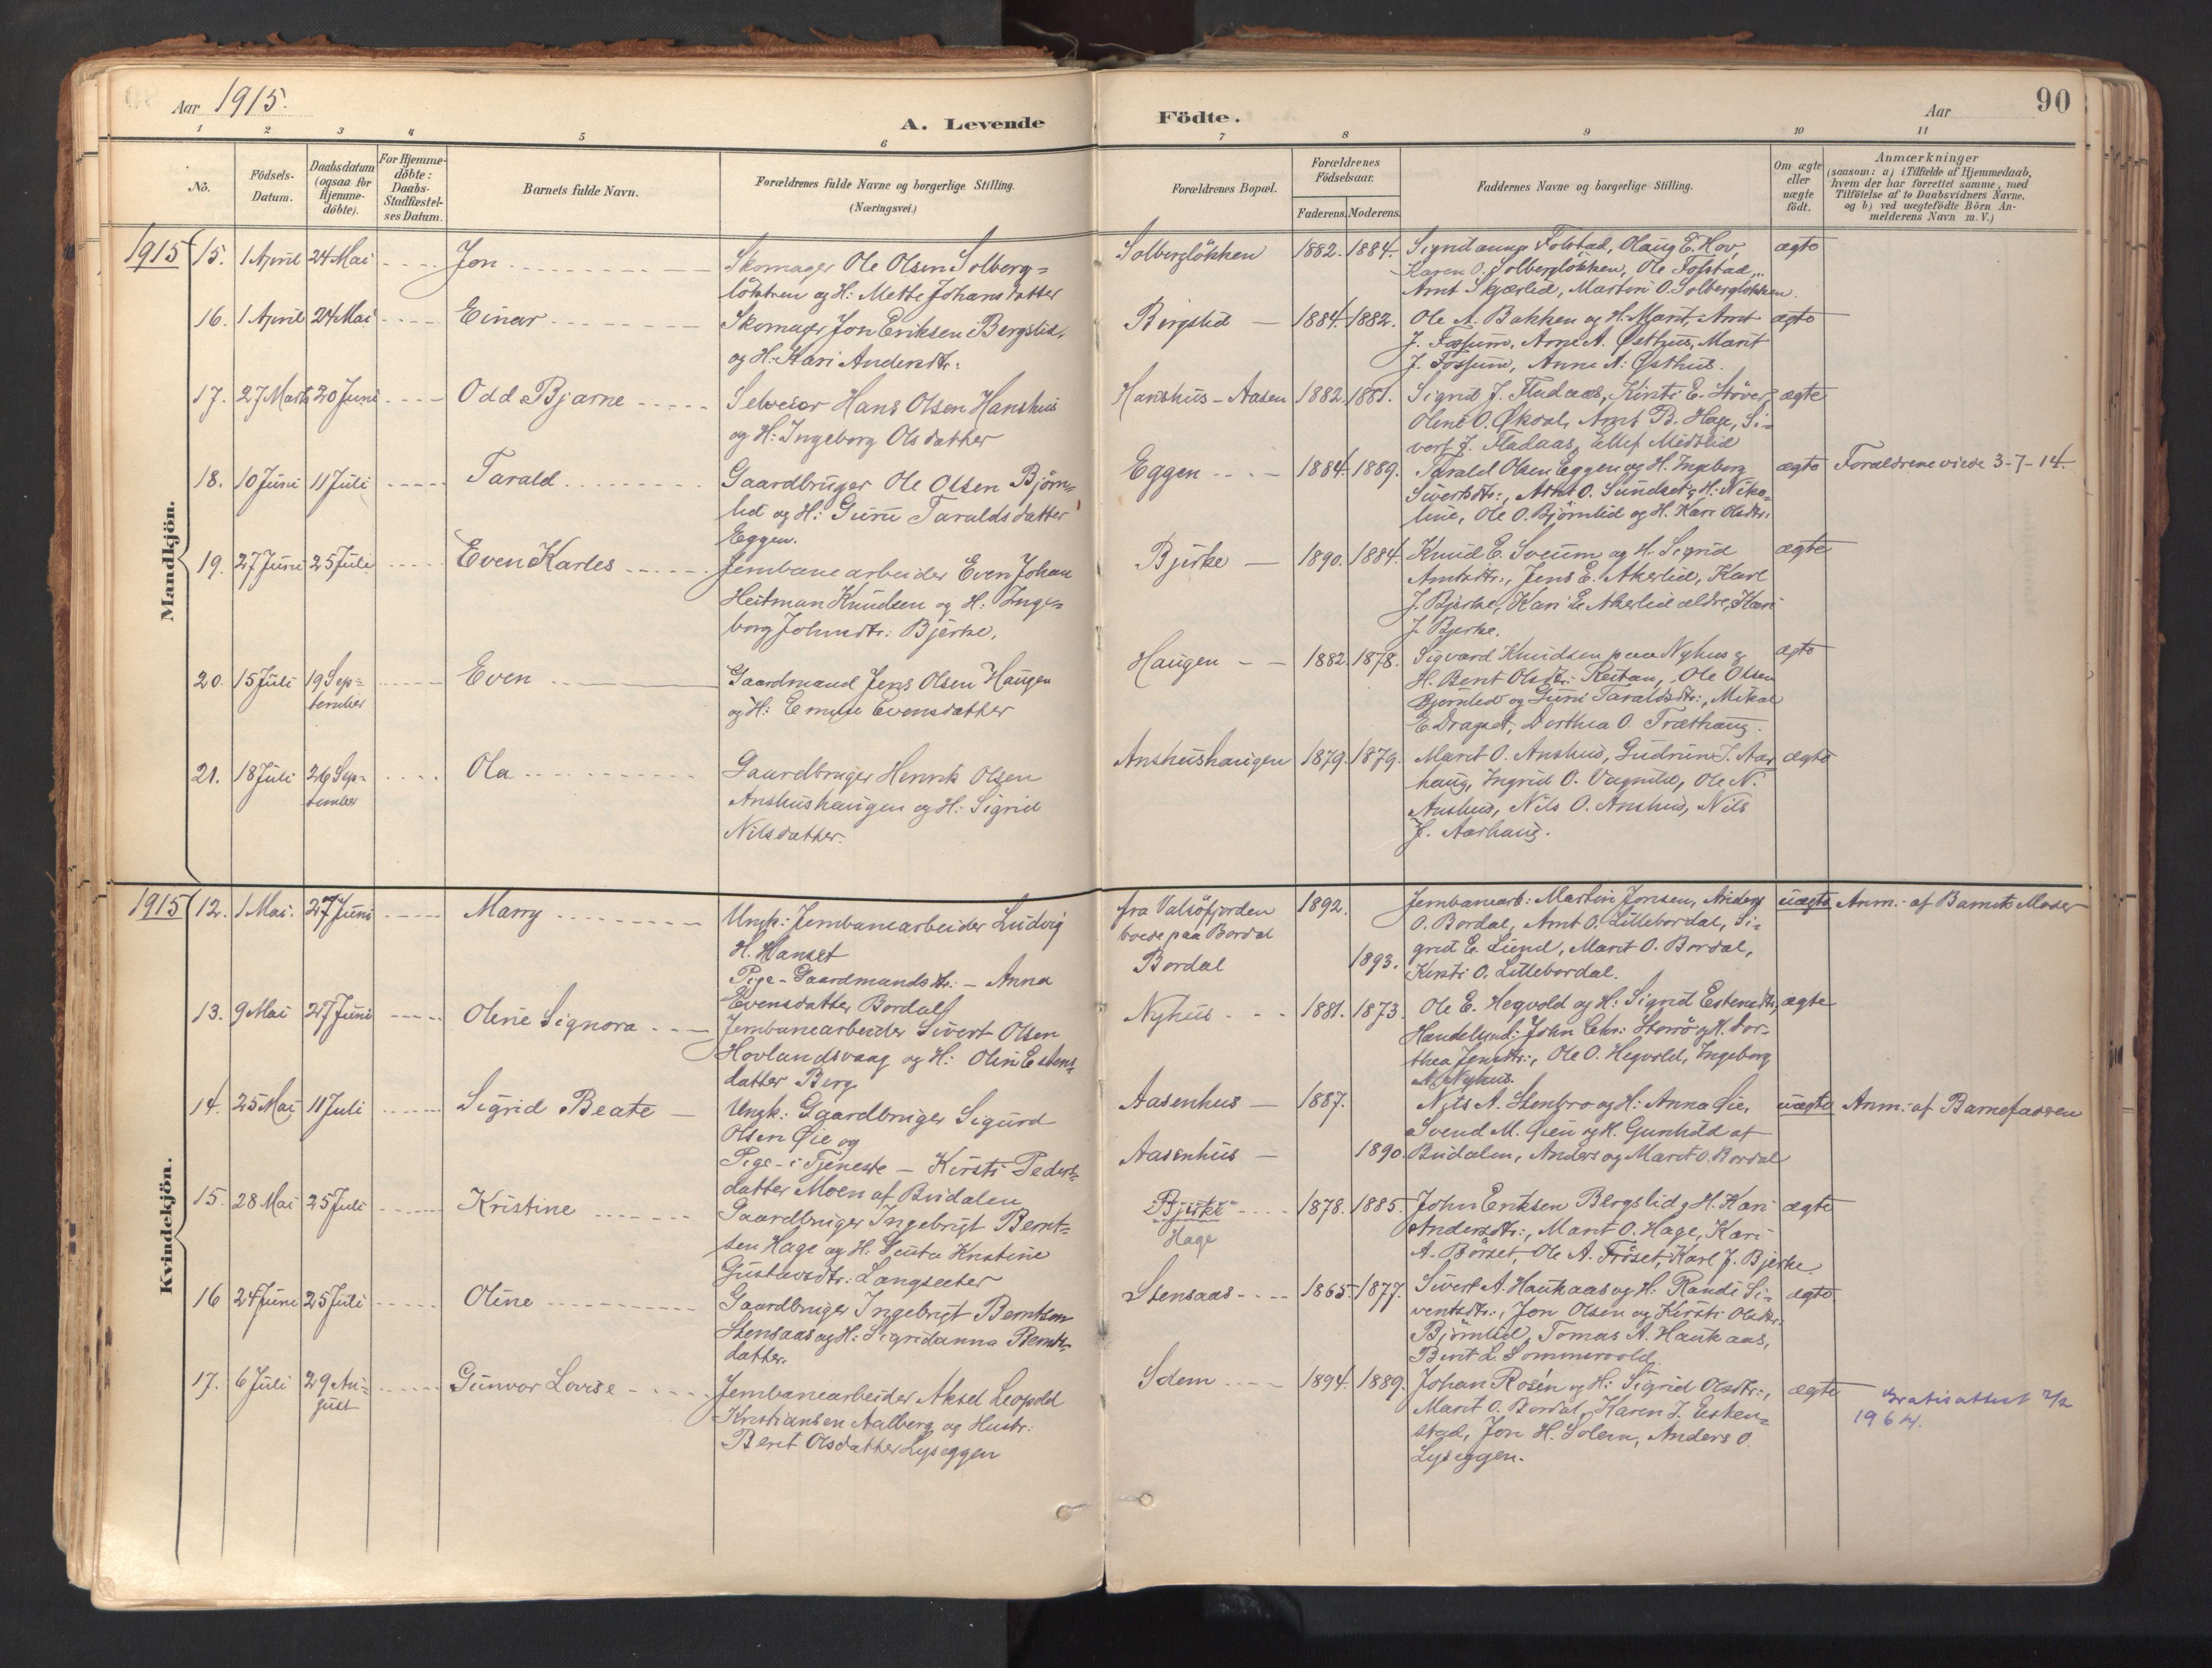 Aar 1915.
A. Levende
1 2 3 4 5 6
Nö.
Födsels-
Datum.
Daabsdatum
(ogsaa for
Hjemme-
döbte).
For Hjemme-
döbte:
Daabs-
Stadfæstel-
ses Datum.
Barnets fulde Navn.
Forældrenes fulde Navne og borgerlige Stilling.
(Næringsvei.)
Mandkjön.
1915 15. 1 April 24 Mai Jon Skomager Ole Olsen Solberg-
lökken og H: Mette Johansdatter
16. 1 April 24 Mai Einar Skomager Jon Eriksen Bergslid
og H: Kari Andersdtr:
17. 27 Marts 20 Juni Odd Bjarne Selveier Hans Olsen Hanshus
og H: Ingeborg Olsdatter
18. 10 Juni 11 Juli Tarald Gaardbruger Ole Olsen Björn-
lid og H: Guru Taraldsdatter
Eggen.
19. 27 Juni 25 Juli Even Karles Jernbanearbeider Even Johan
Heitman Knudsen og H: Inge-
borg Johnsdtr: Bjerke.
20. 15 Juli 19 Sep-
tember Even Gaardmand Jens Olsen Haugen
og H: Evensdatter
21. 18 Juli 26 Sep-
tember Ola Gaardbruger Henrik Olsen
Anshushaugen og H: Sigrid
Nilsdatter.
Kvindekjön.
1915 12. 1 Mai. 27 Juni Marry Ungk: Jernbanearbeider Ludvig
H. Hanset
Pige - Gaardmandsdtr. - Anna
Evensdatter Bordal
13. 9 Mai 27 Juni Oline Signora Jernbanearbeider Sivert Olsen
Hovlandsvaag og H: Olin Estens-
datter Berg.
14. 25 Mai 11 Juli Sigrid Beate Ungk: Gaardbruger Sigurd
Olsen Öie og
Pige - i Tjeneste - Kirsti Peders-
datter Moen af Budalen
15. 28 Mai 25 Juli Kristine Gaardbruger Ingebrigt Bernt-
sen Hage og H. Kristine
Gustavsdtr: Langseeter
16 24 Juni 25 Juli Oline Gaardbruger Ingebrigt Berntsen
Stensaas og H: Sigridanna Bernts-
datter.
17. 6 Juli 29 Au-
gust Gunvor Lovise Jernbanearbeider Aksel Leopold
Kristiansen Aalberg og Hustr:
Berit Olsdatter Lyseggen
Födte.
Aar 90
7 8 9 10 11
Forældrenes Bopæl.
Forældrenes
Födselsaar.
Faderens. Moderens.
Faddernes Navne og borgerlige Stilling.
Om ægte
eller
uægte
født.
Anmærkninger
(saasom: a) i Tilfælde af Hjemmedaab,
hvem der har forrettet samme, med
Tilföielse af to Daabsvidners Navne.
og b) ved uægtefödte Börn An-
melderens Navn m. V.)
Solberglökken 1882. 1884. Sigridanna Folstad, Olaug E. Hov, ægte
Karen O. Solberglökken, Ole Folstad,
Arnt Skjærlid, Martin O. Solberglökken.
Bergslid 1884. 1882. Ole A. Bakken og H. Marit, Arnt ægte
J. Fossum, Arne A. Østhus, Marit
J. Fossum, Anne A. Østhus.
Hanshus - Aasen 1882. 1881. Sigrid J. Fladaas, Kirsti E. Stöver, ægte
Oline O. Økdal, Arnt B. Hage, Si-
vert J. Fladaas, Ellef Midtlid
Eggen 1884. 1889. Tarald Olsen Eggen og H. Ingeborg ægte Forældrene viede 3-7-14.
Sivertsdtr:, Arnt O. Sundset og H: Niko-
line, Ole O. Björnlid og H. Kari Olsdtr:
Bjerke 1890. 1884. Knud E. Sveum og H. Sigrid ægte
Arntsdtr:, Jens E. Akerlid, Karl
J. Bjerke, Kari E. Akerlid ældre, Kari
J. Bjerke.
Haugen 1882. 1878. Sigvard Knudsen paa Nyhus og ægte
H. Berit Olsdtr: Reitan, Ole Olsen
Björnlid og Guru Taraldsdtr:, Mikal
E. Dragset, Dorthea O. Træthaug.
Anshushaugen 1879. 1879. Marit O. Anshus, Gudrun J. Aar- ægte
haug, Ingrid O. Vagnild, Ole N.
Anshus, Nils O. Anshus, Nils
J. Aarhaug.
fra Valsöfjorden 1892. Jernbanearb: Martin Jonsen, Anders uægte Anm: af Barnets Moder
boede paa Bordal O. Bordal, Arnt O. Lillebordal, Si-
Bordal 1893. grid E. Lund, Marit O. Bordal,
Kirsti O. Lillebordal.
Nyhus 1881. 1873. Ole E. Hegvold og H: Sigrid Estensdtr, ægte
Handelsmd: John Chr: Storrö og H. Dor-
thea Jensdtr:, Ole O. Hegvold, Ingeborg
N. Nyhus.
Aasenhus 1887. Nils A. Stenbro og H: Anna Öie, uægte Anm: af Barnefaderen
Svend M. Öien og H. Gunhild af
Aasenhus 1890. Budalen, Anders og Marit O. Bordal
Bjerke 1878. 1885. John Eriksen Bergslid og H. Kari ægte
Hage Andersdtr:, Marit O. Hage, Kari
A. Börset, Ole A. Fröset, Karl J. Bjerke.
Stensaas 1865. 1877. Sivert A. Haukaas og H: Randi Si- ægte
vertsdtr:, Jon Olsen og Kirsti Olsdtr:
Björnlid, Tomas A. Haukaas,
Berit L. Sommervold.
Idem 1894. 1889. Johan Rosén og H: Sigrid Olsdtr:, ægte Gratisattest 7/2
Marit O. Bordal, Karen J. Esten- 1964.
stad, Jon H. Solem, Anders O.
Lyseggen.